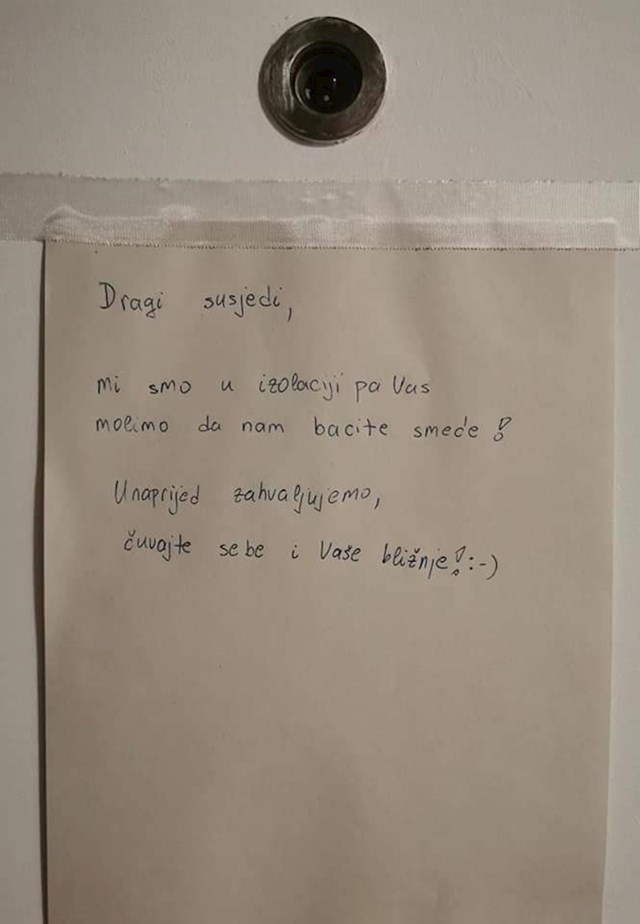 Dragi susjedi,
mi smo u izolaciji pa Vas
molimo da nam bacite smeće!
Unaprijed zahvaljujemo,
čuvajte sebe i Vaše bližnje! :-)